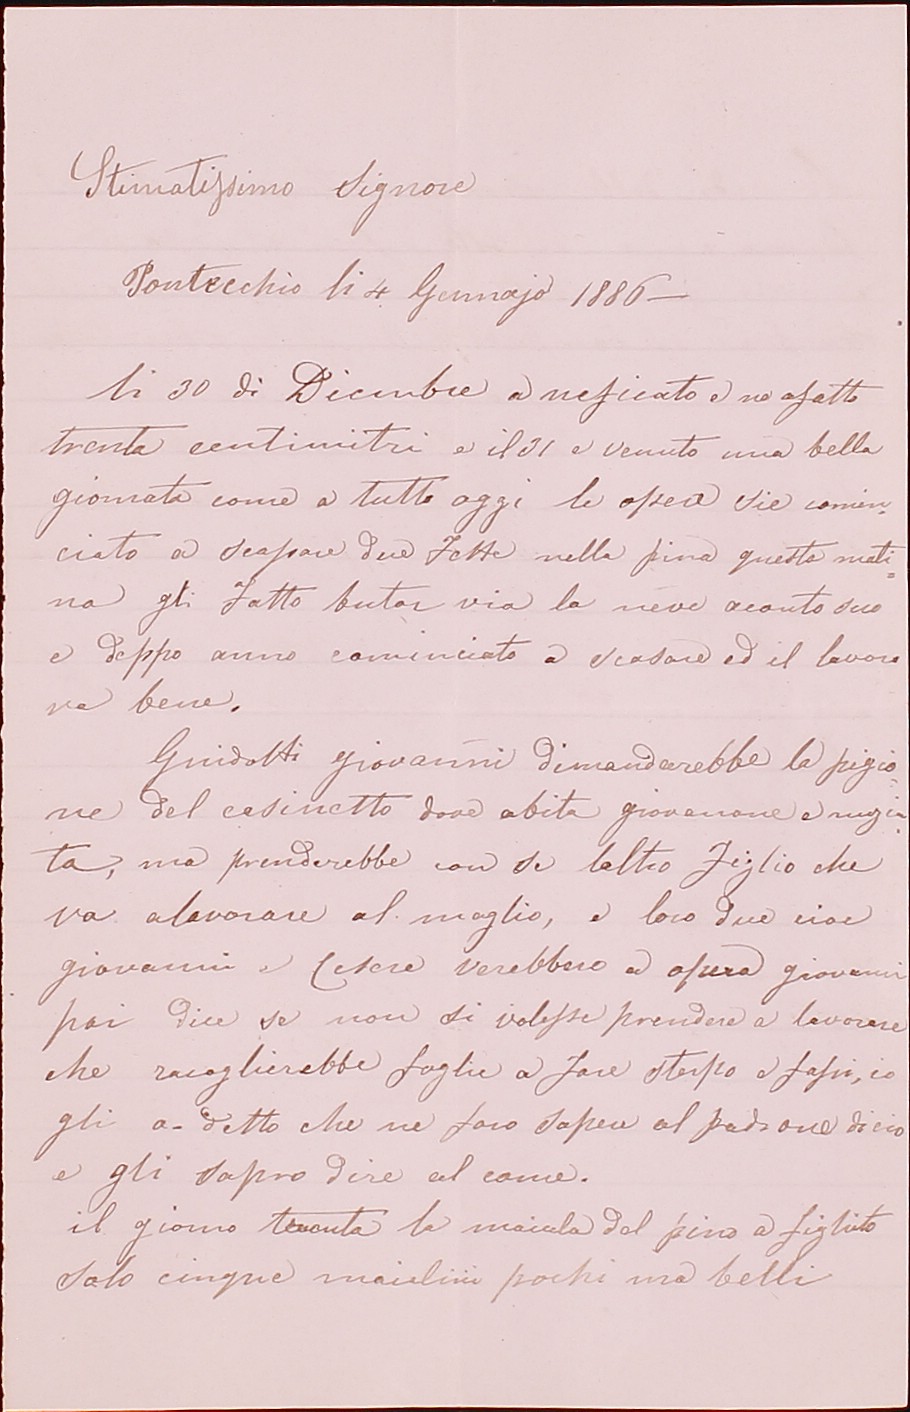 Stimatissimo Signore
Pontecchio li 4 Gennajo 1886 —
li 30 di Dicembre a neficato e ne a fatto
trenta centimitri e il 31 e venuto una bella
giornata come a tutto oggi le opere sie comin-
ciato a scasare due Fette nella pina questa mati=
na gli Fatto butar via la neve aconto suo
e doppo anno cominciato a scasare ed il lavoro
va bene.
Guidotti giovanni dimanderebbe la pigio-
ne del casinetto dove abita giovanone e nuzia-
ta, ma prenderebbe con se laltro Figlio che
va alavorare al maglio, e loro due cioe
giovanni e Cesere verebbero a opera giovanni
poi dice se non si volesse prendere a lavorare
che racoglierebbe foglie a fare sterpo e fassi, io
gli a- detto che ne faro sapere al padrone dicio
e gli sapro dire al come.
il giorno trenta la maiala del pino a figliato
solo cinque maialini pochi ma belli